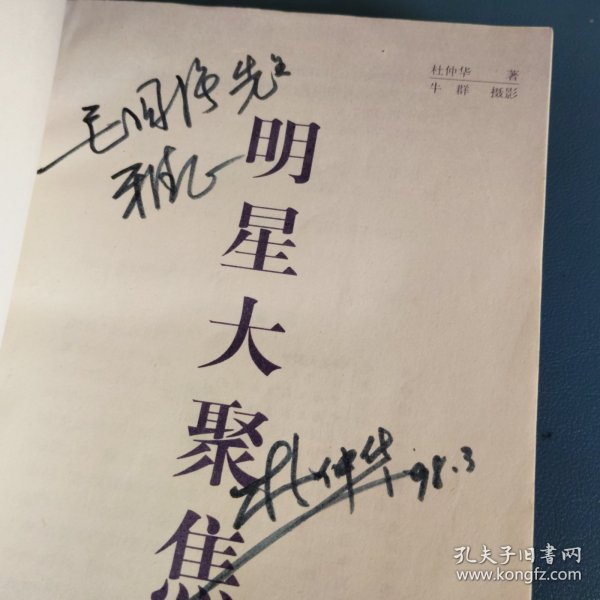 杜仲华 著
牛群 摄影
先生
雅正
明星大聚焦
杜仲华 98.3
孔夫子旧书网
www.kongfz.com